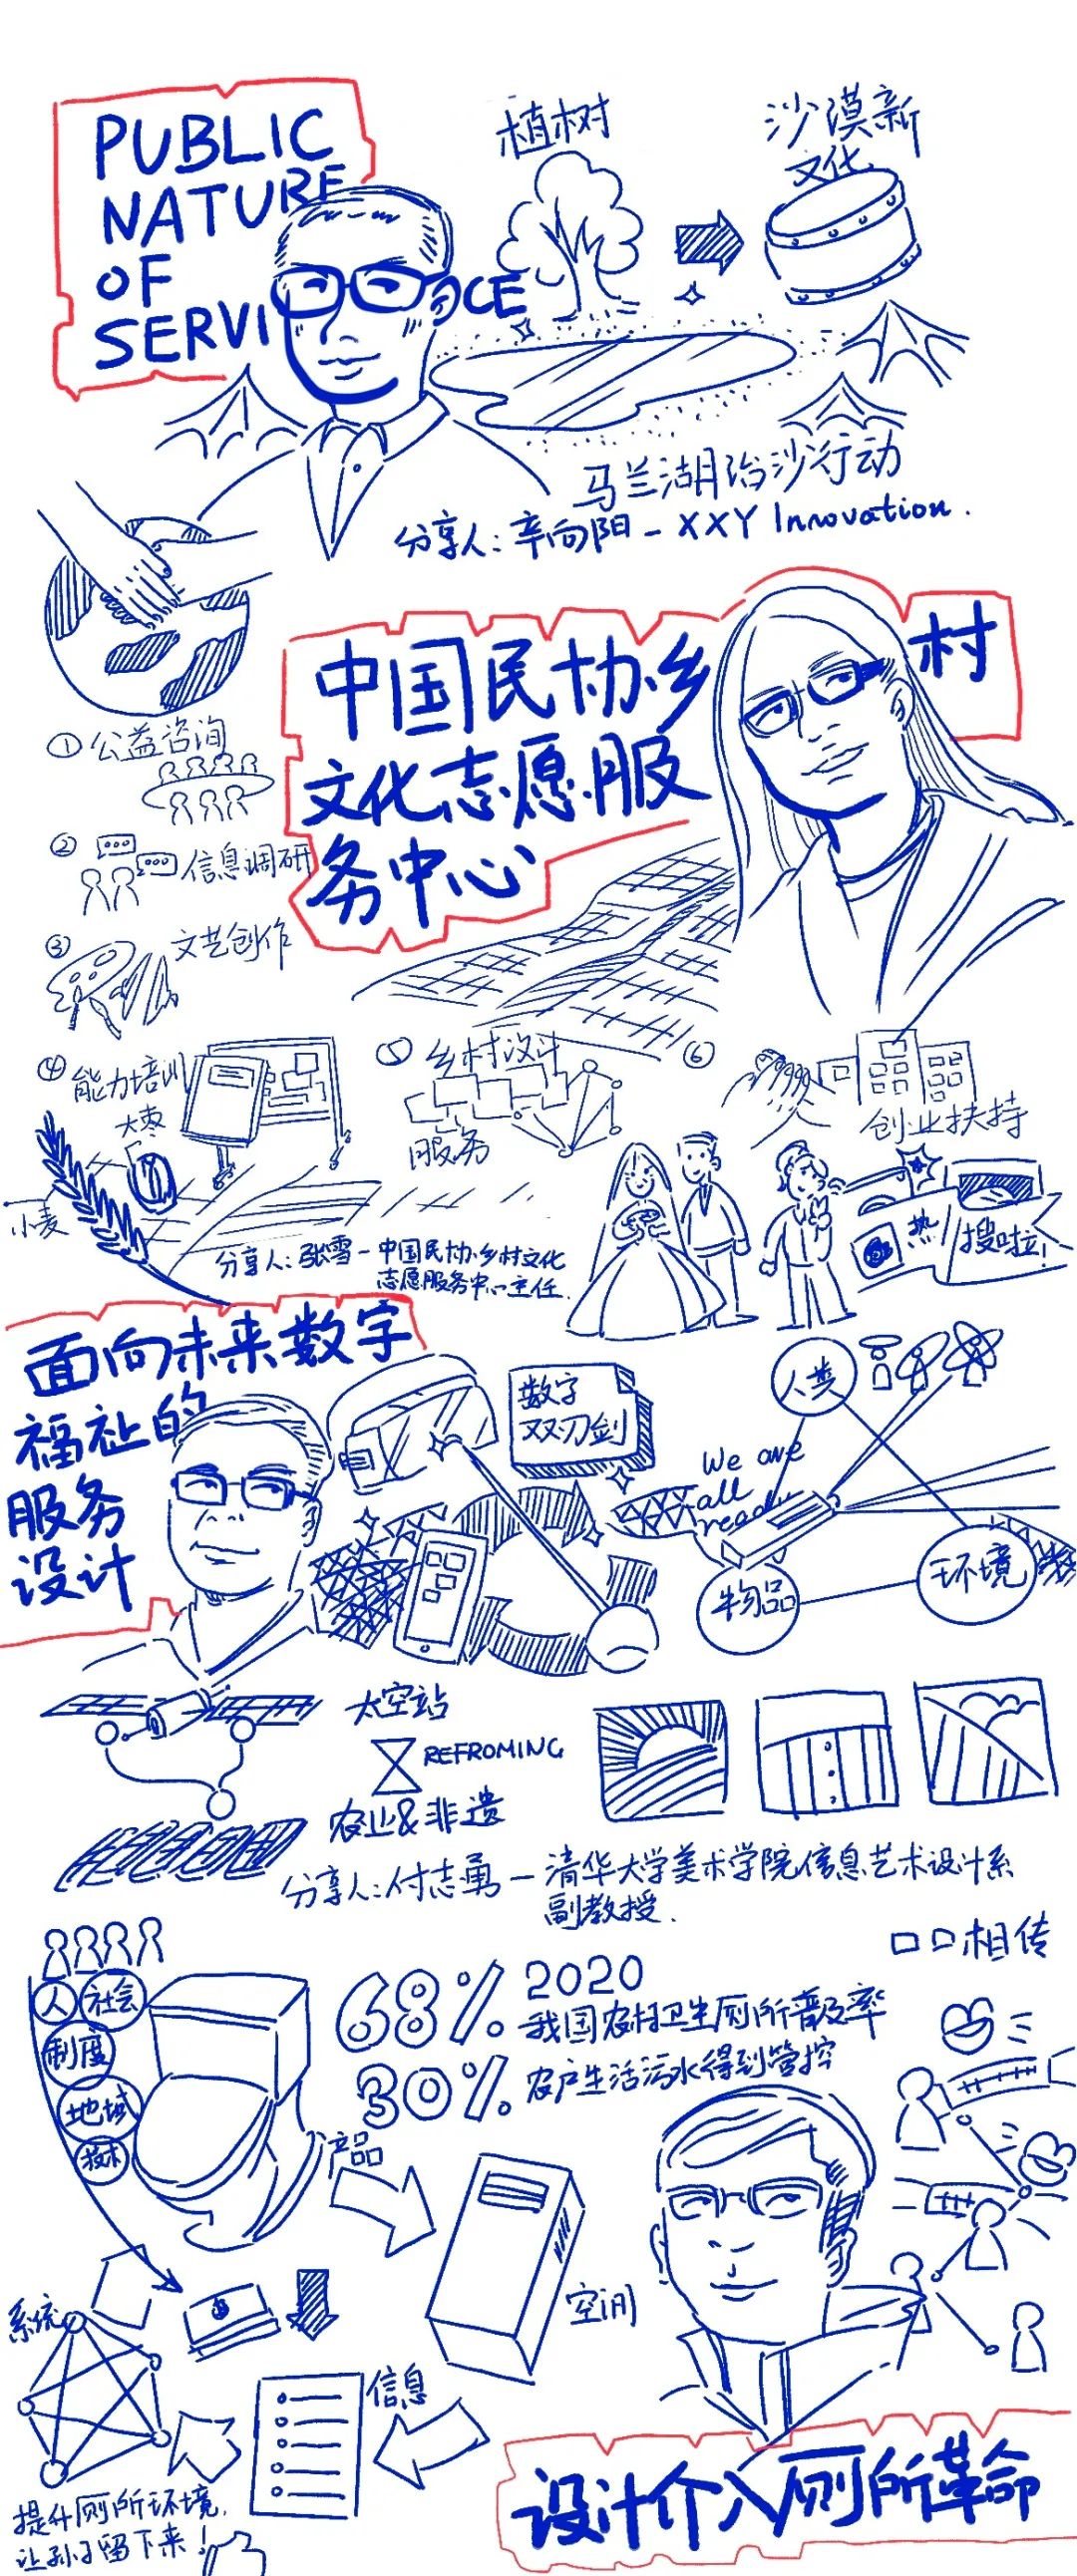 PUBLIC
NATURE
OF
SERVICE
植树
沙漠新
文化
马兰湖治沙行动
分享人：辛向阳－XXY Innovation.
中国民协乡村
文化志愿服
务中心
① 公益咨询
② 信息调研
③ 文艺创作
④ 能力培训
⑤ 乡村设计
服务
⑥
创业扶持
大枣
小麦
热
搜啦！
分享人：张雪－中国民协乡村文化
志愿服务中心主任.
面向未来数字
福祉的
服务
设计
数字
双刃剑
We are
all
ready
人类
物品
环境
太空站
REFROMING
农业&非遗
分享人：付志勇－清华大学美术学院信息艺术设计系
副教授.
口口相传
人
社会
制度
地域
技术
68% 2020
我国农村卫生厕所普及率
30% 农户生活污水得到管控
产品
空间
信息
系统
提升厕所环境，
让孙子留下来！
设计介入厕所革命